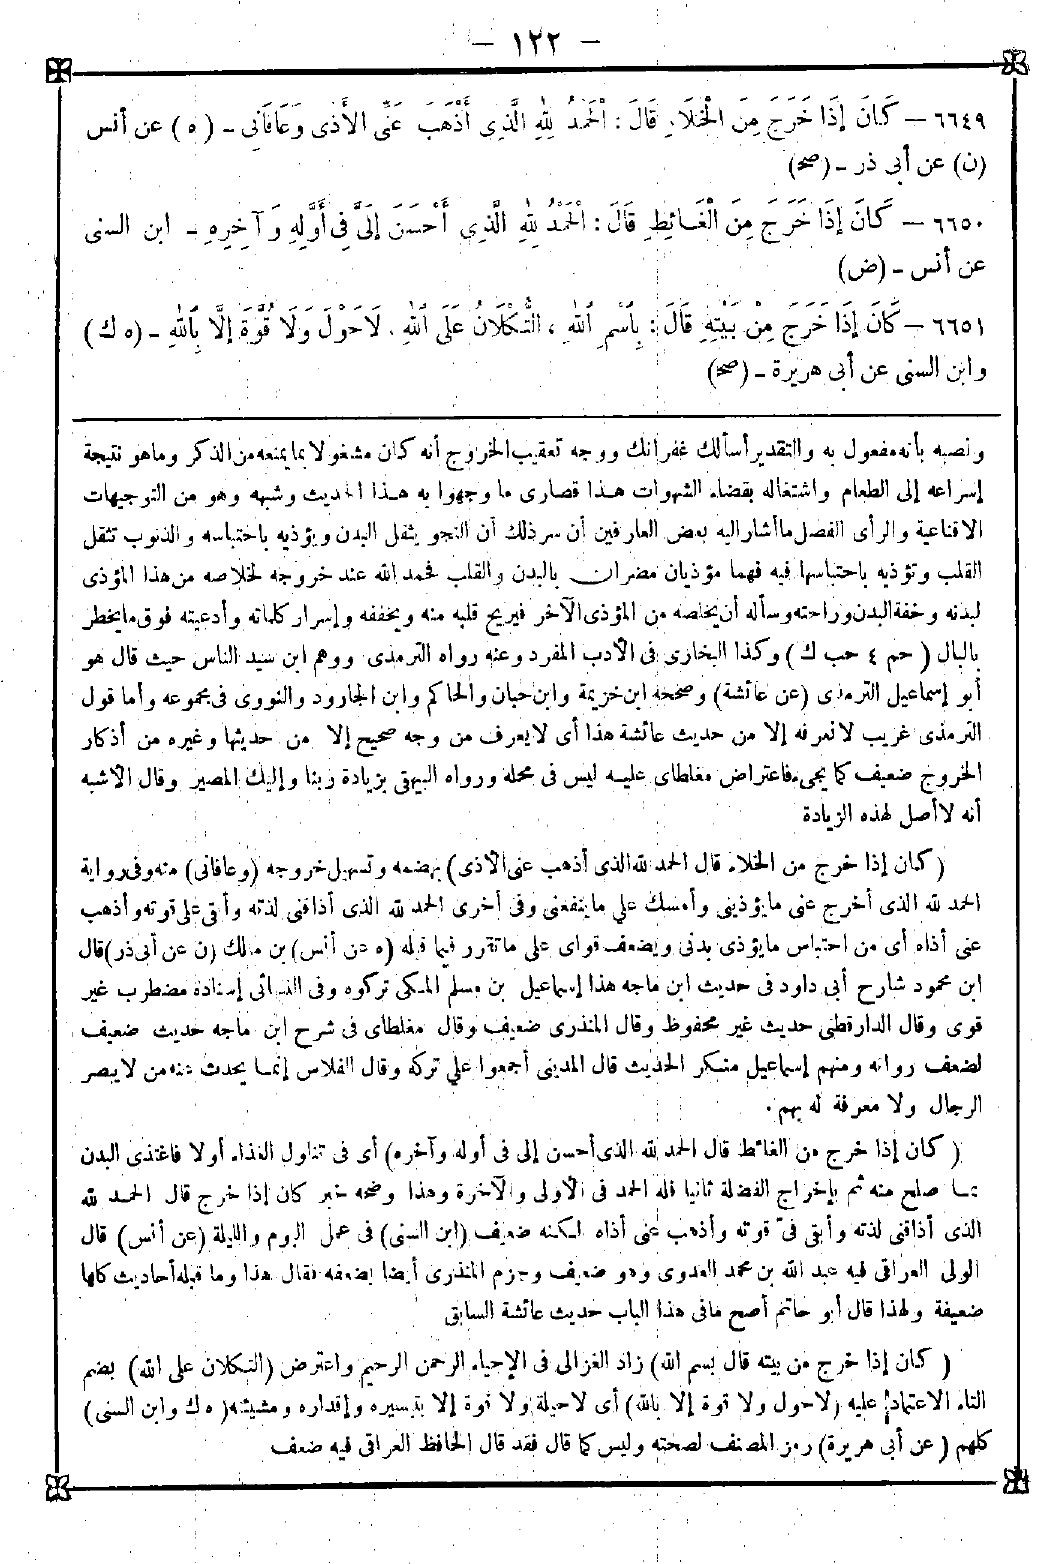 — ١٢٢ —
٦٦٤٩ — كَانَ إِذَا خَرَجَ مِنَ الْخَلَاءِ قَالَ : الْحَمْدُ لِلهِ الَّذِى أَذْهَبَ عَنِّى الأَذَى وَعَافَانِى - (ه) عن أنس
(ن) عن أبى ذر - (صح)
٦٦٥٠ — كَانَ إِذَا خَرَجَ مِنَ الْغَائِطِ قَالَ : الْحَمْدُ لِلهِ الَّذِى أَحْسَنَ إِلَىَّ فِى أَوَّلِهِ وَآخِرِهِ - ابن السنى
عن أنس - (ض)
٦٦٥١ — كَانَ إِذَا خَرَجَ مِنْ بَيْتِهِ قَالَ : بِاسْمِ اللهِ ، التُّكْلَانُ عَلَى اللهِ ، لَا حَوْلَ وَلَا قُوَّةَ إِلَّا بِاللهِ - (ه ك)
وابن السنى عن أبى هريرة - (صح)
ونصبه بأنه مفعول به والتقدير أسألك غفرانك ووجه تعقيب الخروج أنه كان مشغولا بما يمنعه من الذكر وما هو نتيجة
إسراعه إلى الطعام واشتغاله بقضاء الشهوات هذا قصارى ما وجهوا به هذا الحديث وشبهه وهو من التوجيهات
الاقناعية والرأى الفصل ما أشار إليه بعض العارفين أن سر ذلك أن النجو يثقل البدن ويؤذيه باحتباسه والذنوب تثقل
القلب وتؤذيه باحتباسها فيه فهما مؤذيان مضران بالبدن والقلب فحمد الله عند خروجه لخلاصه من هذا المؤذى
لبدنه وخفة البدن وراحته وسأله أن يخلصه من المؤذى الآخر فيريح قلبه منه ويخففه وإسرار كلماته وأدعيته فوق ما يخطر
بالبال (حم ٤ حب ك) وكذا البخارى فى الأدب المفرد وعنه رواه الترمذى ووهم ابن سيد الناس حيث قال هو
أبو إسماعيل الترمذى (عن عائشة) وصححه ابن خزيمة وابن حبان والحاكم وابن الجارود والنووى فى مجموعه وأما قول
الترمذى غريب لا نعرفه إلا من حديث عائشة هذا أى لا يعرف من وجه صحيح إلا من حديثها وغيره من أذكار
الخروج ضعيف كما يجىء فاعتراض مغلطاى عليه ليس فى محله ورواه البيهقى بزيادة ربنا وإليك المصير وقال الأشبه
أنه لا أصل لهذه الزيادة
(كان إذا خرج من الخلاء قال الحمد لله الذى أذهب عنى الأذى) بهضمه وتسهيل خروجه (وعافانى) منه وفى رواية
الحمد لله الذى أخرج عنى ما يؤذينى وأمسك على ما ينفعنى وفى أخرى الحمد لله الذى أذاقنى لذته وأبقى على قوته وأذهب
عنى أذاه أى من احتباس ما يؤذى بدنى ويضعف قواى على ما تقرر فيما قبله (ه عن أنس) بن مالك (ن عن أبى ذر) قال
ابن محمود شارح أبى داود فى حديث ابن ماجه هذا إسماعيل بن مسلم المكى تركوه وفى النسائى إسناده مضطرب غير
قوى وقال الدارقطنى حديث غير محفوظ وقال المنذرى ضعيف وقال مغلطاى فى شرح ابن ماجه حديث ضعيف
لضعف رواته ومنهم إسماعيل منكر الحديث قال المدينى أجمعوا على تركه وقال الفلاس إنما يحدث عنه من لا يبصر
الرجال ولا معرفة له بهم .
(كان إذا خرج من الغائط قال الحمد لله الذى أحسن إلى فى أوله وآخره) أى فى تناول الغذاء أولا فاغتذى البدن
بما صلح منه ثم بإخراج الفضلة ثانيا فله الحمد فى الأولى والآخرة وهذا وضحه خبر كان إذا خرج قال الحمد لله
الذى أذاقنى لذته وأبقى فىّ قوته وأذهب عنى أذاه لكنه ضعيف (ابن السنى) فى عمل اليوم والليلة (عن أنس) قال
الولى العراقى فيه عبد الله بن محمد العدوى وهو ضعيف وجزم المنذرى أيضا بضعفه فقال هذا وما قبله أحاديث كلها
ضعيفة ولهذا قال أبو حاتم أصح ما فى هذا الباب حديث عائشة السابق
(كان إذا خرج من بيته قال بسم الله) زاد الغزالى فى الإحياء الرحمن الرحيم واعترض (التكلان على الله) بضم
التاء الاعتماد عليه (لا حول ولا قوة إلا بالله) أى لا حيلة ولا قوة إلا بتيسيره وإقداره ومشيئته (ه ك وابن السنى)
كلهم (عن أبى هريرة) رمز المصنف لصحته وليس كما قال فقد قال الحافظ العراقى فيه ضعف